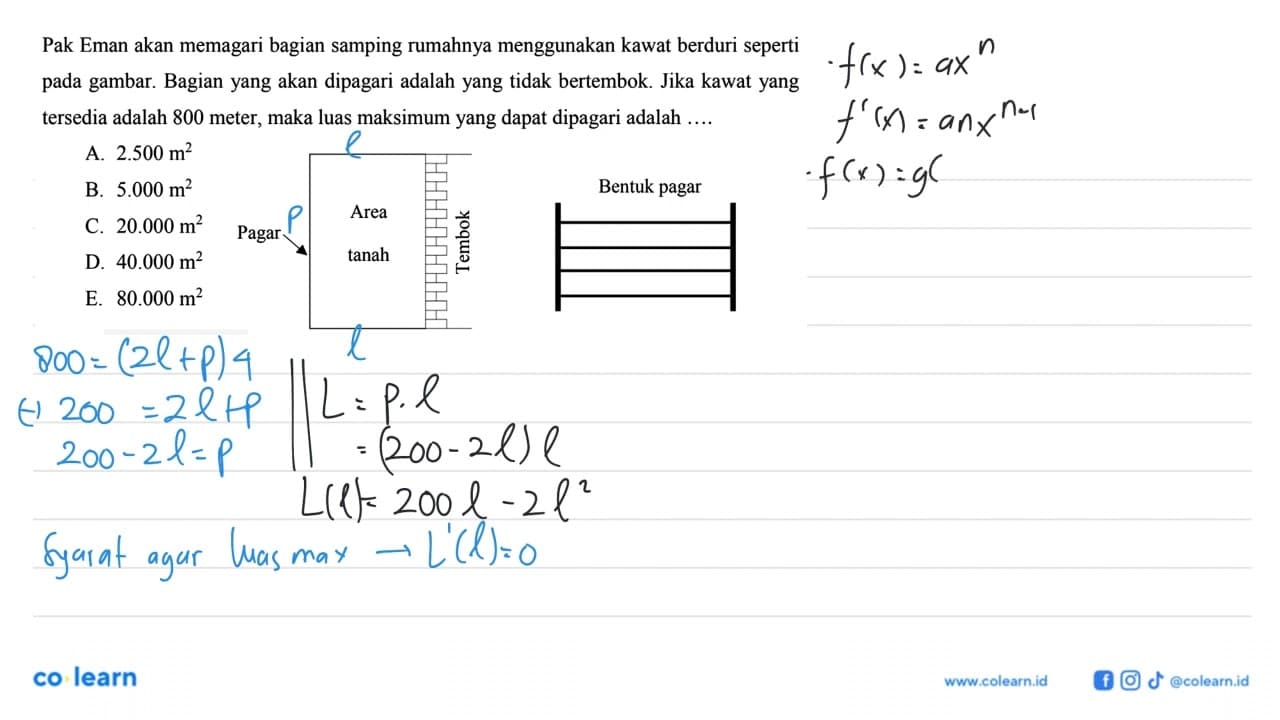 Pak Eman akan memagari bagian samping rumahnya menggunakan kawat berduri seperti
pada gambar. Bagian yang akan dipagari adalah yang tidak bertembok. Jika kawat yang
tersedia adalah 800 meter, maka luas maksimum yang dapat dipagari adalah ….
A. 2.500 m²
B. 5.000 m²
C. 20.000 m²
D. 40.000 m²
E. 80.000 m²
l
p
Pagar
Area
tanah
Tembok
l
Bentuk pagar
· f(x) = ax^n
f'(x) = anx^{n-1}
· f(x) = g(
800 = (2l + p) 4
(-) 200 = 2l + p
200 - 2l = p
L = p . l
= (200 - 2l) l
L(l) = 200 l - 2 l²
Syarat agar luas max → L'(l) = 0
co learn
www.colearn.id
@colearn.id